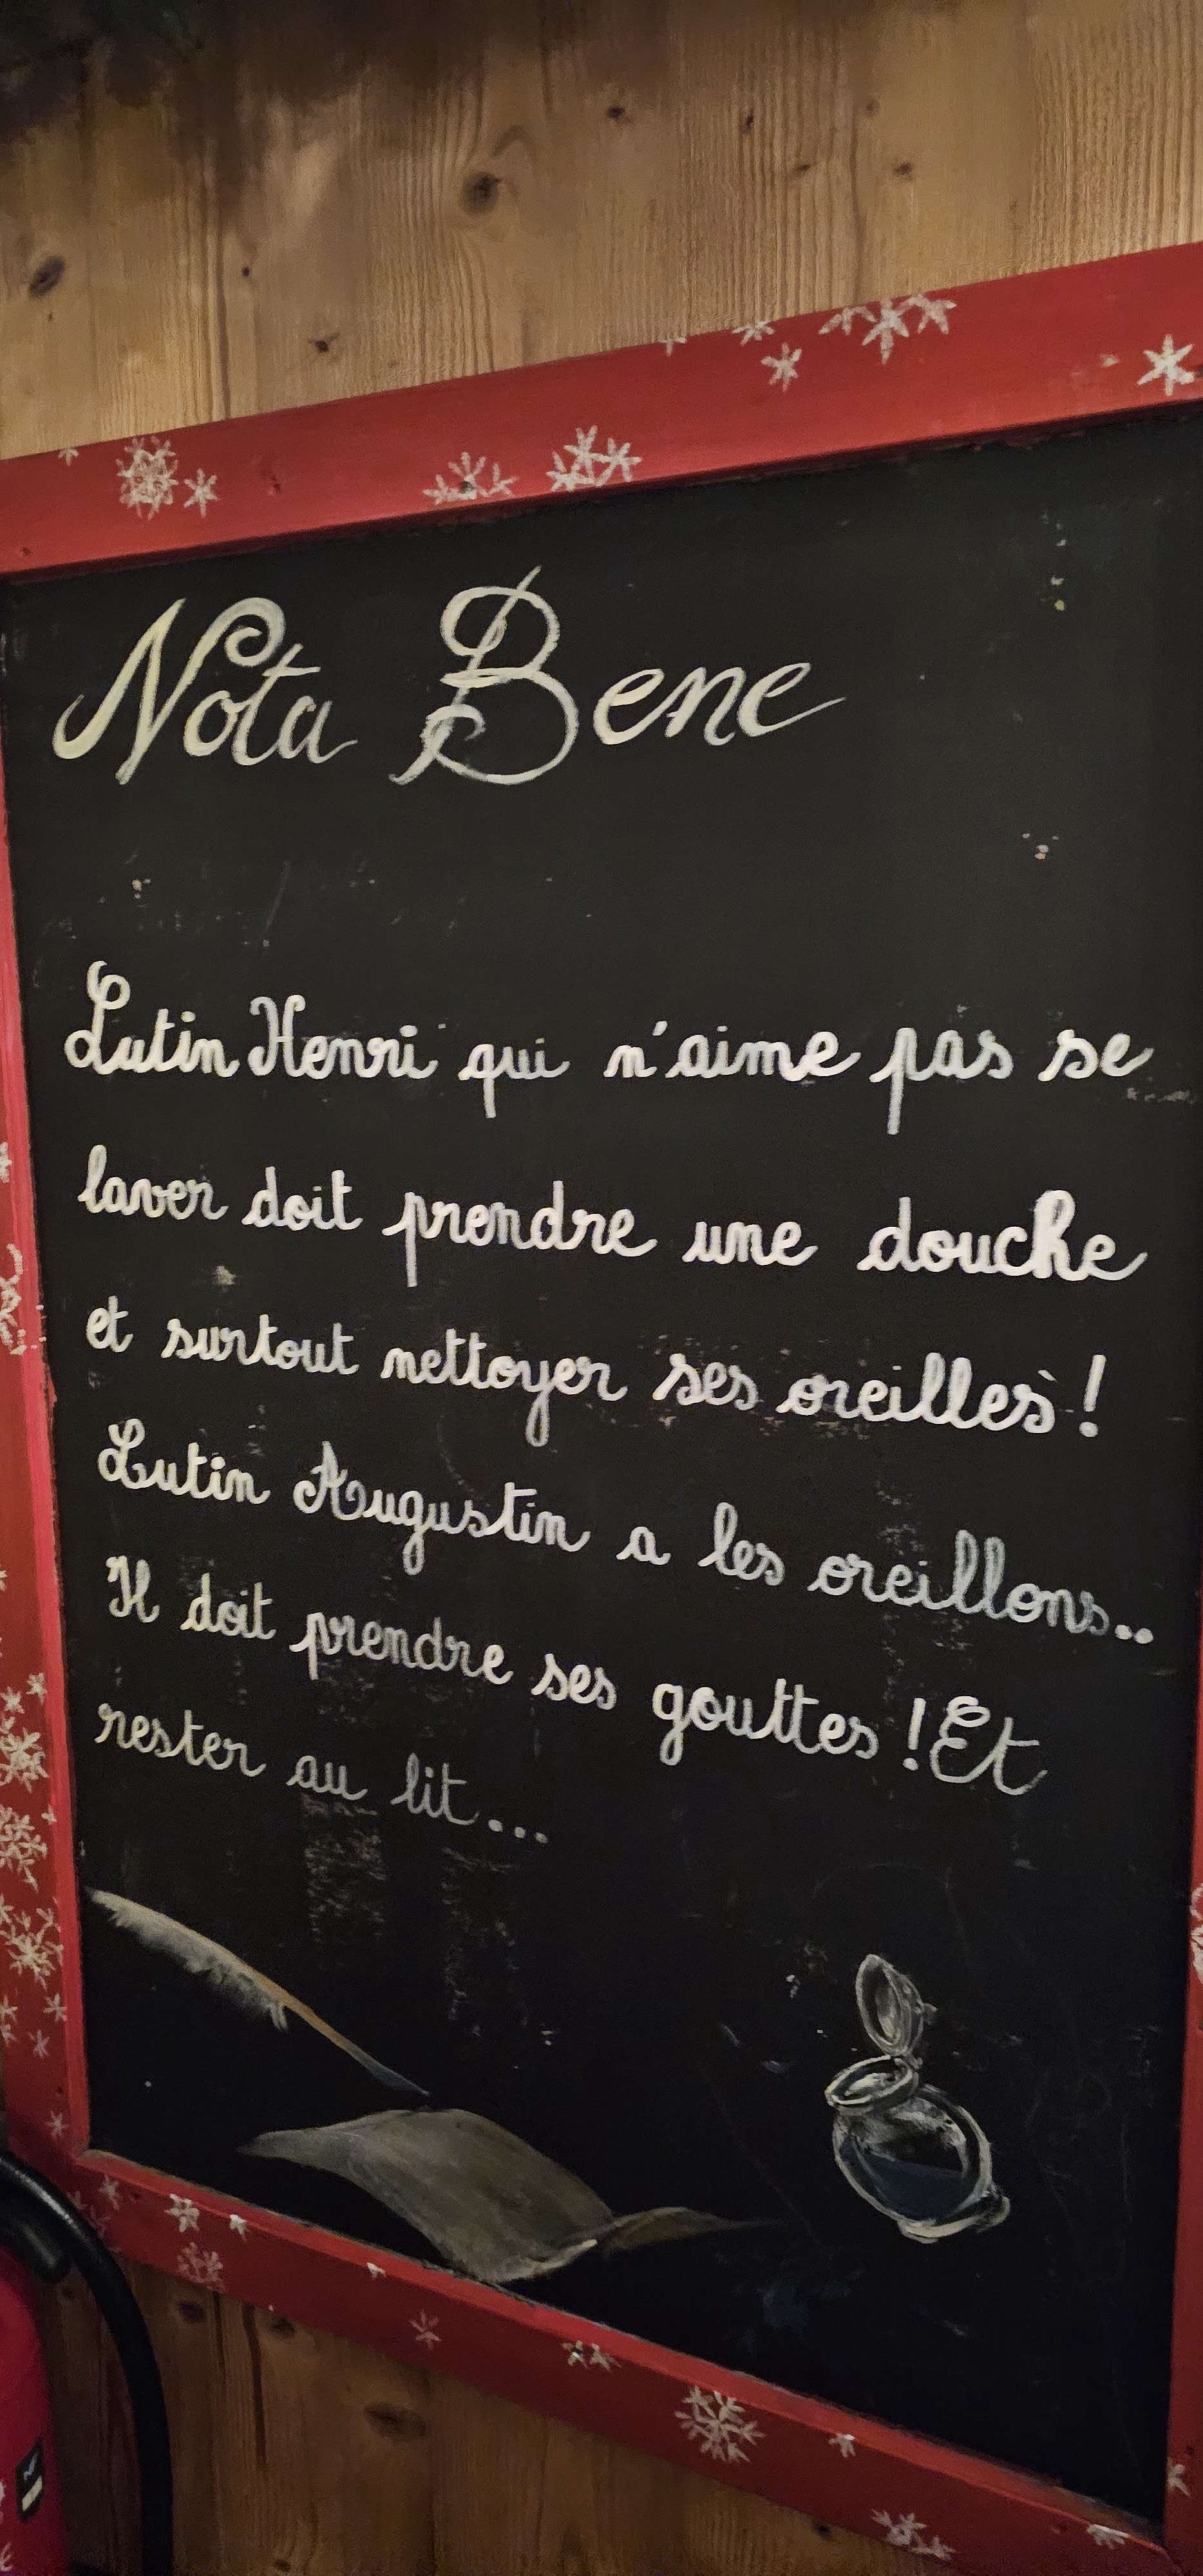 Nota Bene
Lutin Henri qui n'aime pas se
laver doit prendre une douche
et surtout nettoyer ses oreilles !
Lutin Augustin a les oreillons..
Il doit prendre ses gouttes ! Et
rester au lit...